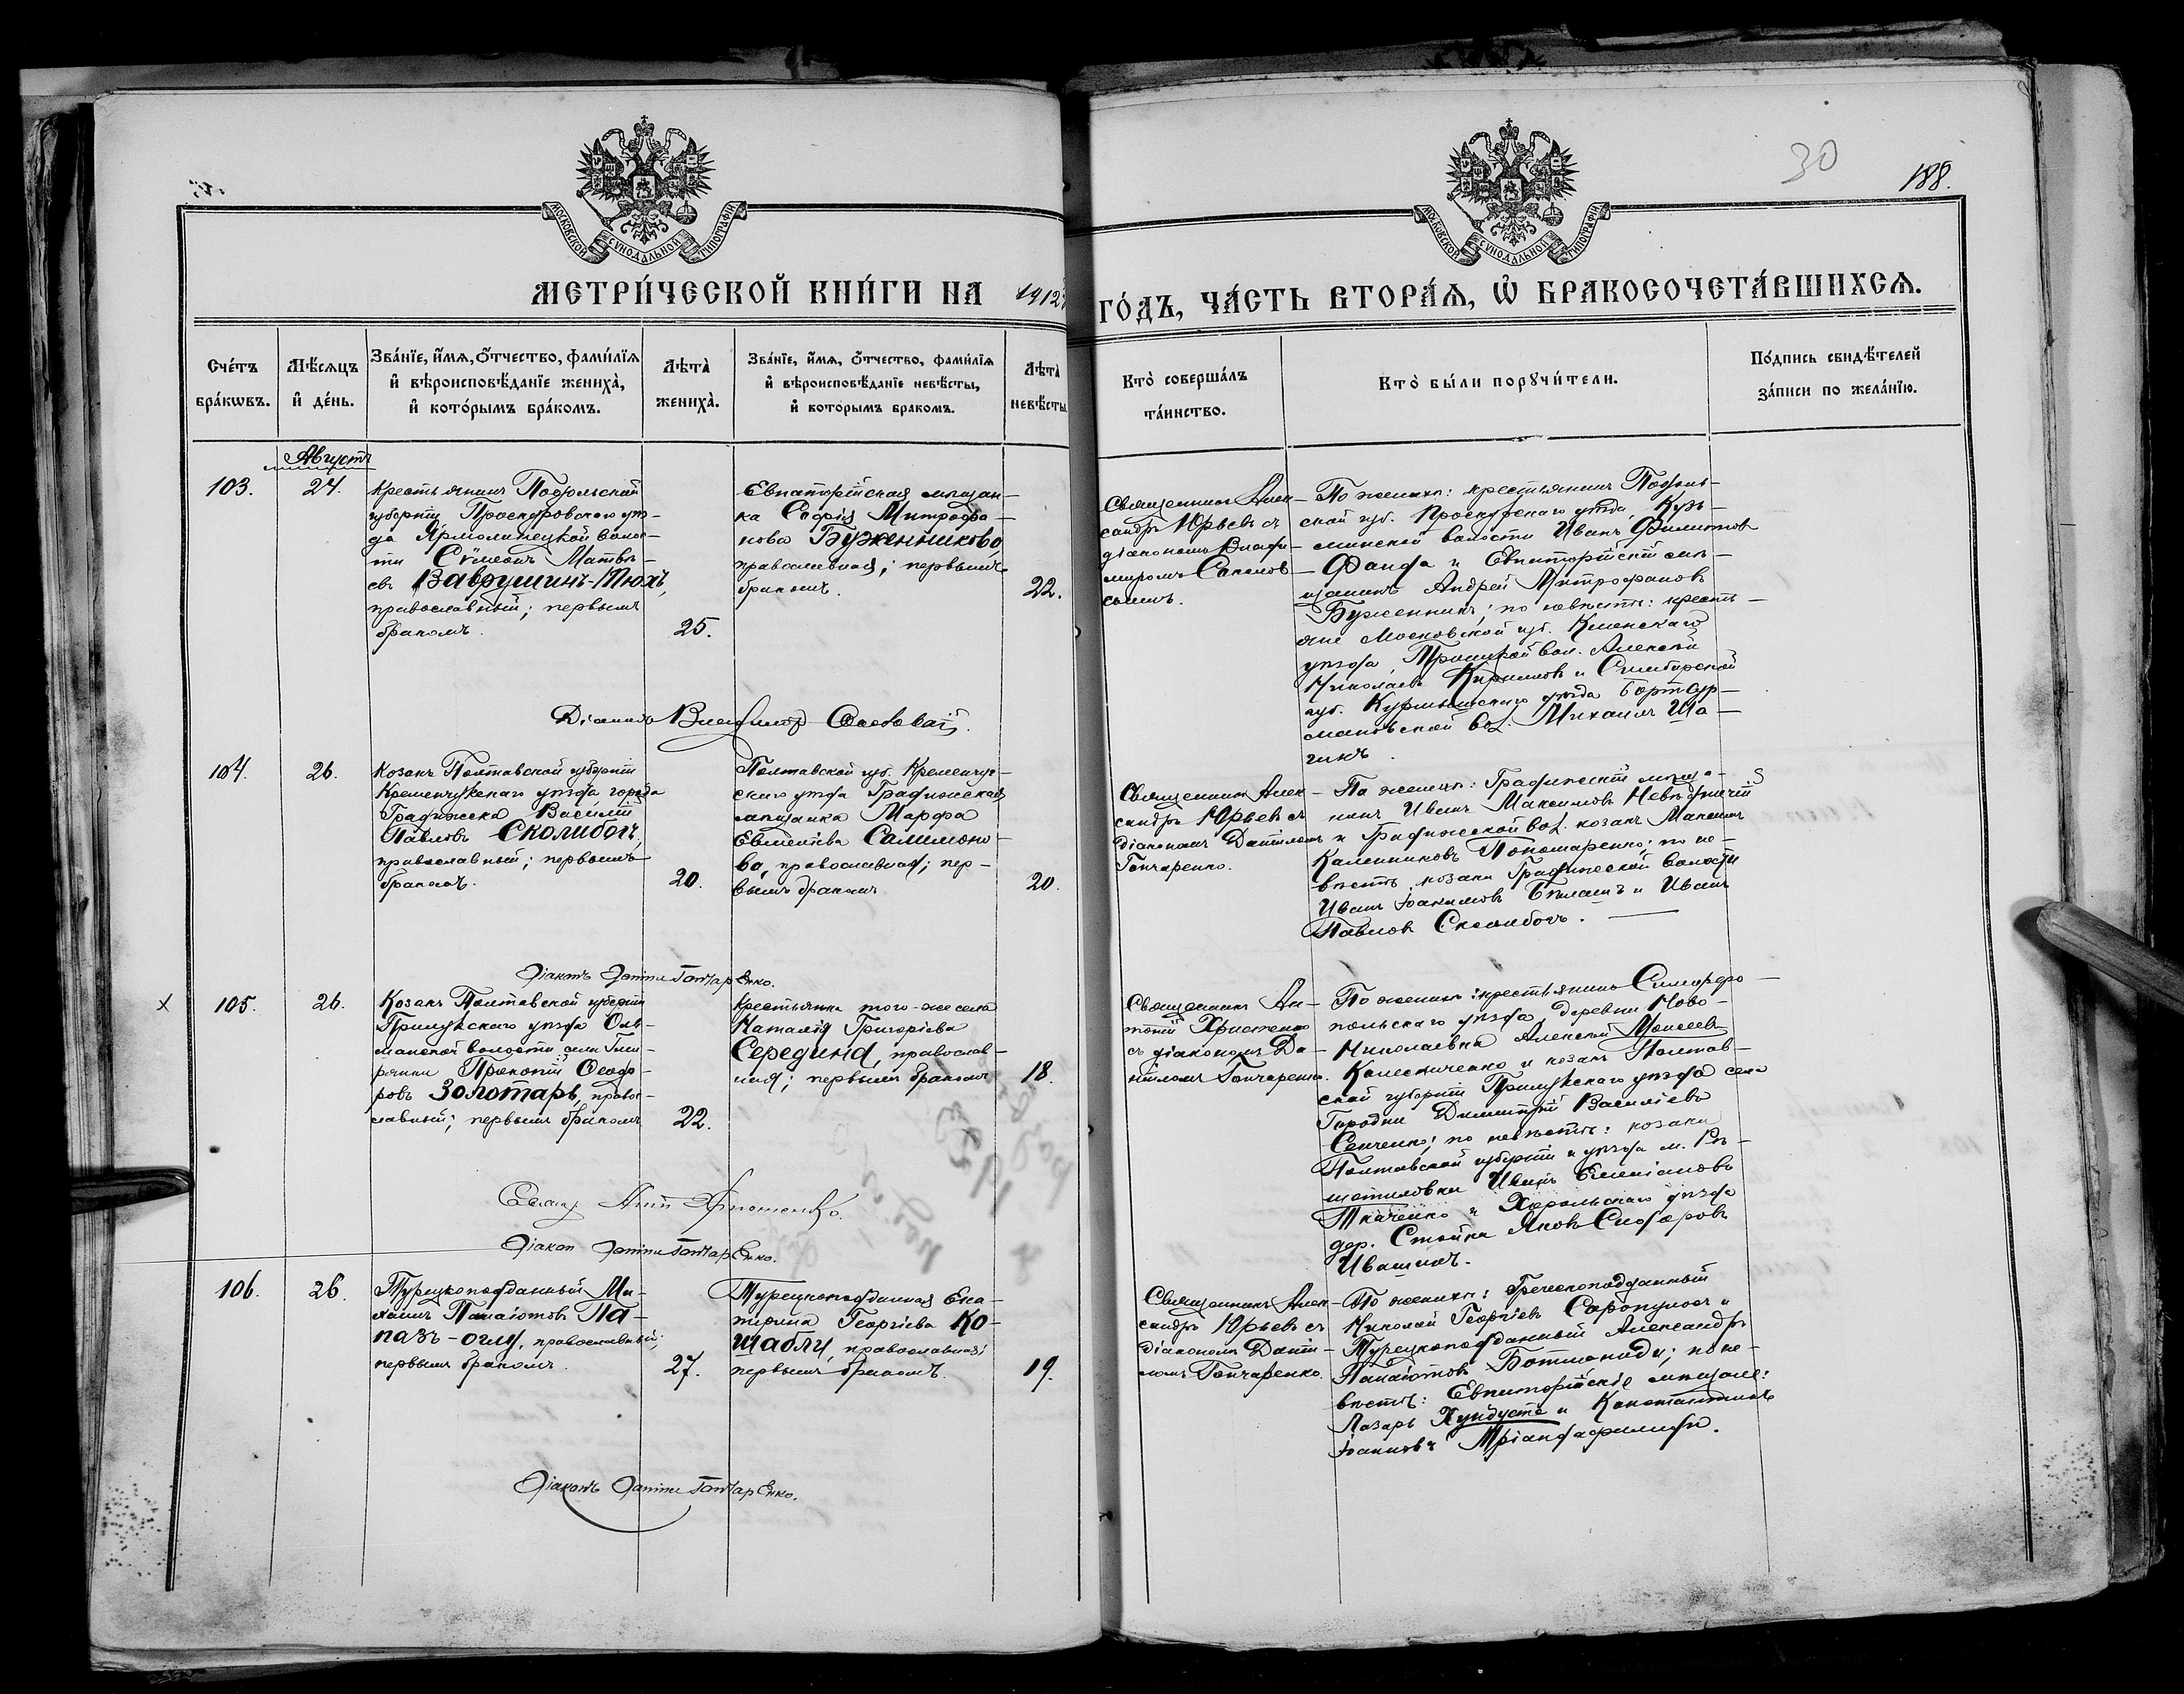 30
188.
МОСКОВСКОЙ СѴНОДАЛЬНОЙ ТИПОГРАФІИ
МОСКОВСКОЙ СѴНОДАЛЬНОЙ ТИПОГРАФІИ
МЕТРИ́ЧЕСКОЙ КНИ́ГИ НА 1912
ГО́ДЪ, ЧА́СТЬ ВТОРА́Я, Ѡ҆ БРАКОСОЧЕТА́ВШИХСЯ.
Сче́тъ
бра́кѡвъ.
Мѣ́сяцъ
и҆ де́нь.
Зва́нїе, и҆́мя, ѻ҆́тчество, фами́лїя
и҆ вѣроисповѣ́данїе жениха̀,
и҆ кото́рымъ бра́комъ.
Лѣта̀
жениха̀.
Зва́нїе, и҆́мя, ѻ҆́тчество, фами́лїя
и҆ вѣроисповѣ́данїе невѣ́сты,
и҆ которымъ бракомъ.
Лѣта̀
невѣ́сты.
Кто̀ соверша́лъ
та́инство.
Кто̀ бы́ли порꙋчи́тели.
По́дпись свидѣ́телей
за́писи по жела́нїю.
Августъ
103.
24.
Крестьянинъ Подольской
губерніи Проскуровскаго уѣз-
да Ярмолинецкой волос-
ти Сѵмеонъ Матвѣ-
евъ Ваврушинъ-Тюхъ,
православный; первымъ
бракомъ.
25.
Евпаторійская мѣщан-
ка Софія Митрофа-
нова Буженникова,
православная; первымъ
бракомъ.
22.
Священникъ Алек-
сандръ Юрьевъ съ
діакономъ Влади-
миромъ
По женихѣ: крестьянинъ Подоль-
ской губ. Проскурскаго уѣзда, Кузь-
минской волости Иванъ Филиповъ
Фанда и Евпаторійскій мѣ-
щанинъ Андрей Митрофановъ
Буженникъ; по невѣстѣ: кресть-
яне Московской губ. Клинскаго
уѣзда, Троицкой вол. Алексѣй
Николаевъ Кириловъ и Симбирской
губ. Курмышскаго уѣзда
вол. Михаилъ Ша-
гинъ.
Діаконъ Владиміръ
104.
26.
Козакъ Полтавской губерніи
Кременчугскаго уѣзда города
Градижска Василій
Павловъ Сколибогъ,
православный; первымъ
бракомъ.
20.
Полтавской губ. Кременчуг-
скаго уѣзда Градижская
мѣщанка Марфа
Евменіева Салимоно-
ва, православная; пер-
вымъ бракомъ
20.
Священникъ Алек-
сандръ Юрьевъ съ
діакономъ Даніиломъ
Гончаренко.
По женихѣ: Градижскій мѣща-
нинъ Иванъ Максимовъ
и Градижской вол. козакъ Максимъ
Калинниковъ Пономаренко; по не-
вѣстѣ козаки Градижской волости
Иванъ Іоакимовъ Бѣлашъ и Иванъ
Павловъ Сколибогъ.
Діаконъ Даніилъ Гончаренко.
х
105.
26.
Козакъ Полтавской губерніи
Прилукскаго уѣзда Оль-
шанской волости села
Прокопій Ѳеодо-
ровъ Золотарь, право-
славный; первымъ бракомъ
22.
Крестьянка того-же села
Наталія Григоріева
Середина, православ-
ная; первымъ бракомъ
18.
Священникъ Ан-
тоній Христенко
съ діакономъ Да-
ніиломъ Гончаренко.
По женихѣ: крестьянинъ Симферо-
польскаго уѣзда, деревни Ново-
Николаевка Алексѣй Моисеевъ
Колесниченко и козакъ Полтав-
ской губерніи Прилукскаго уѣзда села
Городни Димитрій Василіевъ
Сенченко; по невѣстѣ: козаки
Полтавской губерніи и уѣзда м. Рѣ-
шетиловки Иванъ Емеліановъ
Ткаченко и Хорольскаго уѣзда
дер. Стойка Яковъ
Ивашина.
Священ. Антоній Христенко.
Діакон Даніилъ Гончаренко.
106.
26.
Турецкоподданный Ми-
хаилъ Панаіотовъ Па-
пазъ-оглу, православный;
первымъ бракомъ.
27.
Турецкоподданная Ека-
терина Георгіева Ко-
шаблу, православная;
первымъ бракомъ.
19.
Священникъ Алек-
сандръ Юрьевъ съ
діакономъ Даніи-
ломъ Гончаренко.
По женихѣ: Греческоподданный
Николай Георгіевъ Саропулосъ и
Турецкоподданный Александръ
Панаіотовъ Ботманиди; по не-
вѣстѣ: Евпаторійскіе мѣщане:
Лазарь и Константинъ
Іоанновъ Тріандафилиди.
Діаконъ Даніилъ Гончаренко.